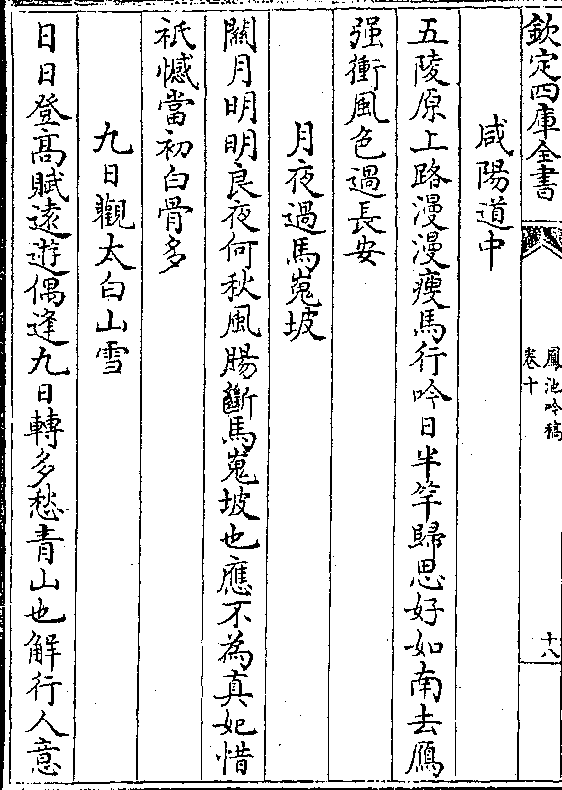 欽定四庫全書
鳳池吟稿
卷十
十八
咸陽道中
五陵原上路漫漫瘦馬行吟日半竿歸思好如南去鴈
强衝風色過長安
月夜過馬嵬坡
關月明明良夜何秋風腸斷馬嵬坡也應不為真妃惜
祇憾當初白骨多
九日觀太白山雪
日日登高賦遠遊偶逢九日轉多愁青山也解行人意